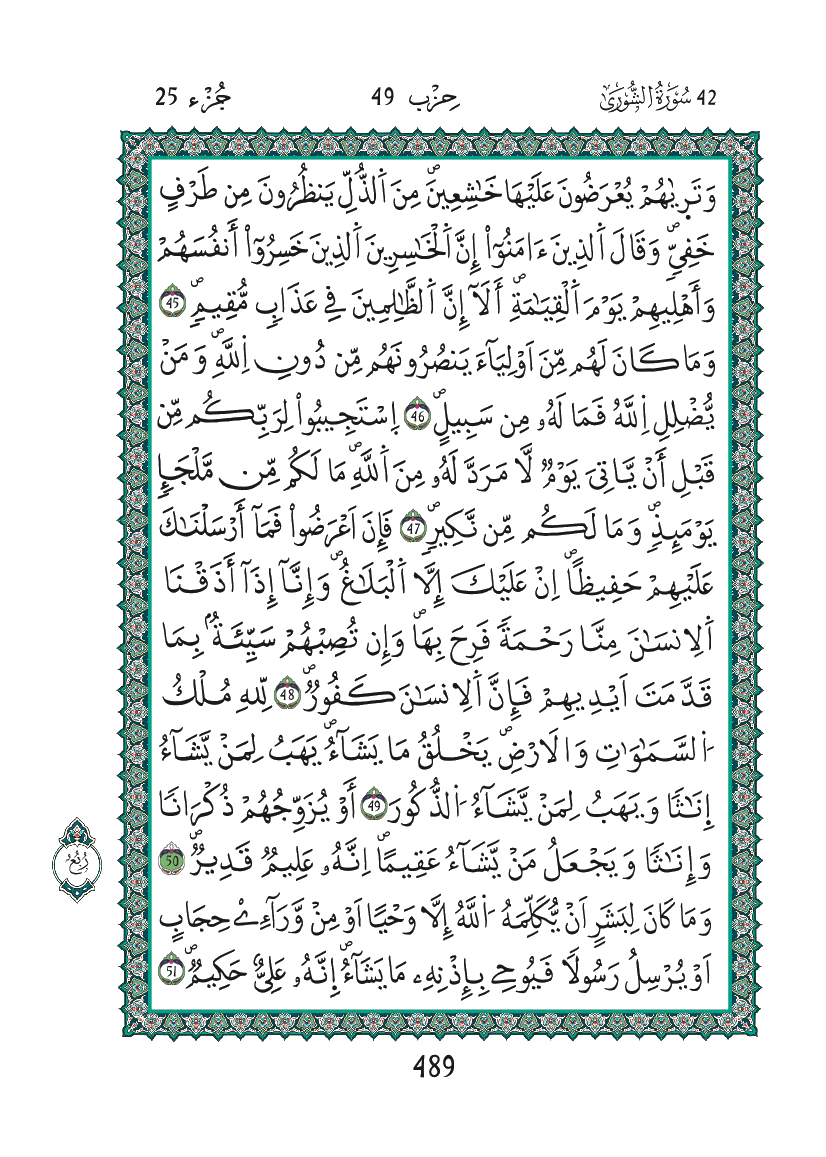 42 سُورَةُ الشُّورَىٰ
حِزْب 49
جُزْء 25
وَتَر۪يٰهُمْ يُعْرَضُونَ عَلَيْهَا خَٰشِعِينَۖ مِنَ اَ۬لذُّلِّ يَنظُرُونَ مِن طَرْفٍ
خَفِيّٖۖ وَقَالَ اَ۬لذِينَ ءَامَنُوٓاْ إِنَّ اَ۬لْخَٰسِرِينَ اَ۬لذِينَ خَسِرُوٓاْ أَنفُسَهُمْ
وَأَهْلِيهِمْ يَوْمَ اَ۬لْقِيَٰمَةِۖ أَلَآ إِنَّ اَ۬لظَّٰلِمِينَ فِے عَذَابٖ مُّقِيمٖۖ 45
وَمَا كَانَ لَهُم مِّنَ اَوْلِيَآءَ يَنصُرُونَهُم مِّن دُونِ اِ۬للَّهِۖ وَمَنْ
يُّضْلِلِ اِ۬للَّهُ فَمَا لَهُۥ مِن سَبِيلٍۖ 46 اِ۪سْتَجِيبُواْ لِرَبِّكُم مِّن
قَبْلِ أَنْ يَّاتِيَ يَوْمٞ لَّا مَرَدَّ لَهُۥ مِنَ اَ۬للَّهِۖ مَا لَكُم مِّن مَّلْجَإٖ
يَوْمَئِذٖ وَمَا لَكُم مِّن نَّكِيرٖۖ 47 فَإِنَ اَعْرَضُواْ فَمَآ أَرْسَلْنَٰكَ
عَلَيْهِمْ حَفِيظاًۖ اِنْ عَلَيْكَ إِلَّا اَ۬لْبَلَٰغُۖ وَإِنَّآ إِذَآ أَذَقْنَا
اَ۬لِانسَٰنَ مِنَّا رَحْمَةٗ فَرِحَ بِهَاۖ وَإِن تُصِبْهُمْ سَيِّئَةُۢ بِمَا
قَدَّمَتَ اَيْدِيهِمْ فَإِنَّ اَ۬لِانسَٰنَ كَفُورٞۖ 48 لِّلهِ مُلْكُ
اُ۬لسَّمَٰوَٰتِ وَالَارْضِۖ يَخْلُقُ مَا يَشَآءُۖ يَهَبُ لِمَنْ يَّشَآءُ
إِنَٰثاٗ وَيَهَبُ لِمَنْ يَّشَآءُ اُ۬لذُّكُورَ 49 أَوْ يُزَوِّجُهُمْ ذُكْرَاناٗ
وَإِنَٰثاٗ وَيَجْعَلُ مَنْ يَّشَآءُ عَقِيماًۖ اِنَّهُۥ عَلِيمٞ قَدِيرٞۖ 50
رُبُع
وَمَا كَانَ لِبَشَرٍ اَنْ يُّكَلِّمَهُ اُ۬للَّهُ إِلَّا وَحْياً اَوْ مِنْ وَّرَآءِےْ حِجَابٍ
اَوْ يُرْسِلُ رَسُولاٗ فَيُوحِے بِإِذْنِهِۦ مَا يَشَآءُۖ إِنَّهُۥ عَلِيٌّ حَكِيمٞۖ 51
489